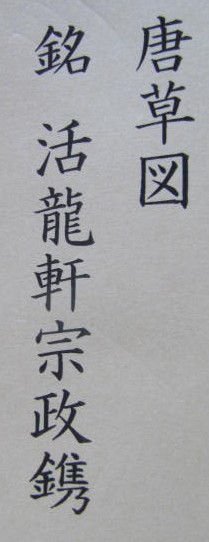 唐草図
銘　活龍軒宗政鐫